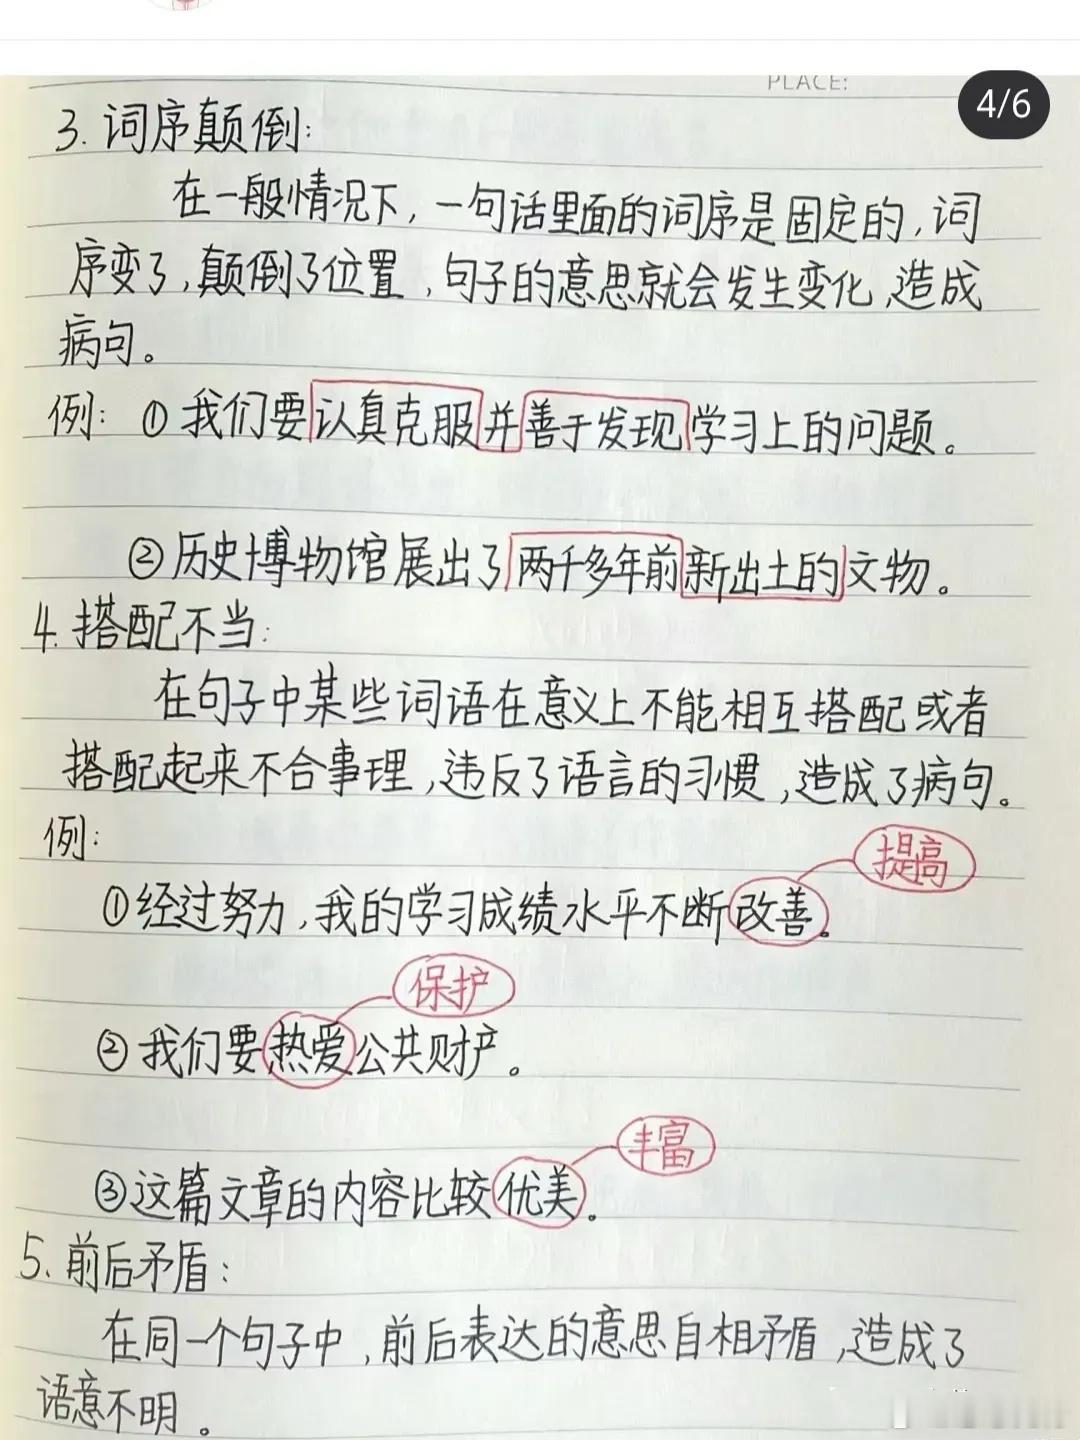 PLACE:
4/6
3. 词序颠倒:
在一般情况下，一句话里面的词序是固定的，词
序变了，颠倒了位置，句子的意思就会发生变化，造成
病句。
例: ①我们要认真克服并善于发现学习上的问题。
②历史博物馆展出了两千多年前新出土的文物。
4. 搭配不当:
在句子中某些词语在意义上不能相互搭配或者
搭配起来不合事理，违反了语言的习惯，造成了病句。
例:
提高
①经过努力，我的学习成绩水平不断改善。
保护
②我们要热爱公共财产。
丰富
③这篇文章的内容比较优美。
5. 前后矛盾:
在同一个句子中，前后表达的意思自相矛盾，造成了
语意不明。